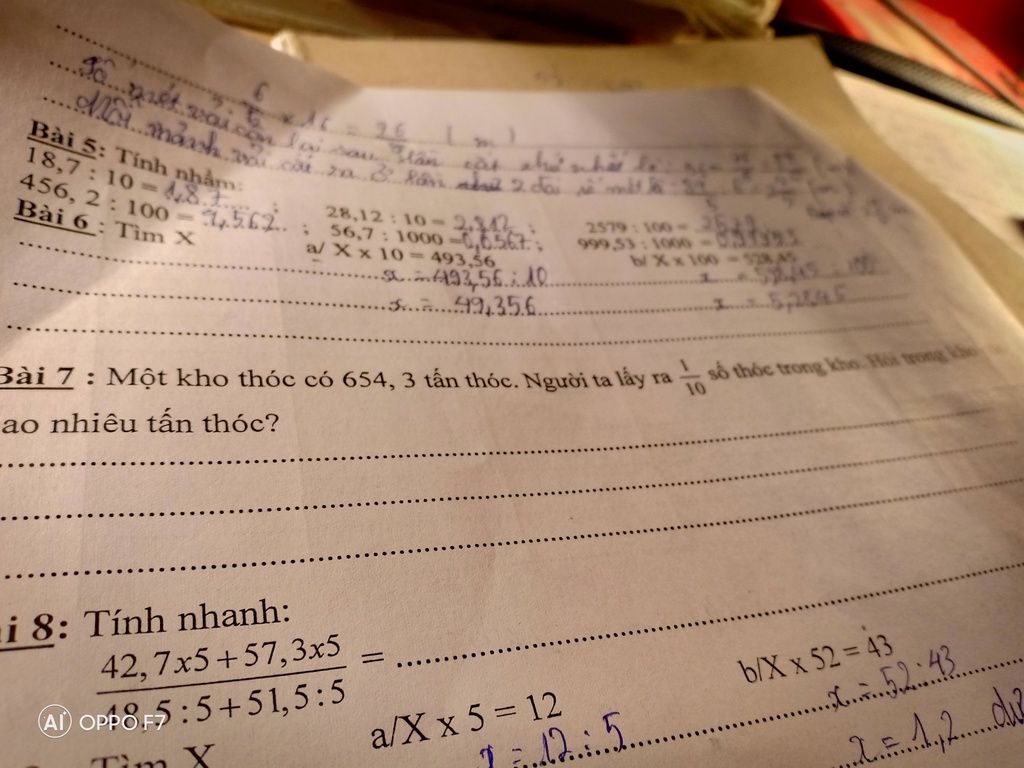 6/5 x 15 = 96/5 ( m )
Bài 5: Tính nhẩm:
18,7 : 10 = 1,8 7 ; 28,12 : 10 = 2,812 ; 2579 : 100 = 25,79
456, 2 : 100 = 4,562 ; 56,7 : 1000 = 0,0567 ; 999,53 : 1000 = 0,99953
Bài 6 : Tìm X
a/ X x 10 = 493,56 b/ X x 100 = 528,45
x = 493,56 : 10 x = 528,45 : 100
x = 49,356 x = 5,2845
Bài 7 : Một kho thóc có 654, 3 tấn thóc. Người ta lấy ra 1/10 số thóc trong kho. Hỏi trong kho
ao nhiêu tấn thóc?
i 8: Tính nhanh:
42, 7x5 + 57, 3x5 / 48,5 : 5 + 51,5 : 5 =
Tìm X
a/X x 5 = 12 b/X x 52 = 43
x = 12 : 5 x = 52 : 43
x = 1,2 dư
AI OPPO F7